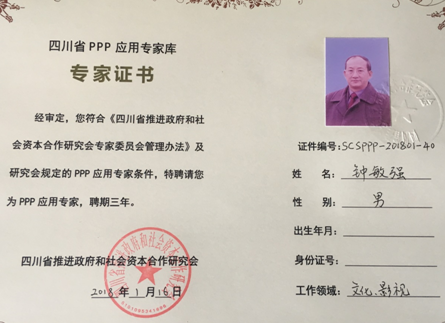 四川省 PPP 应用专家库
专家证书
经审定，您符合《四川省推进政府和社
会资本合作研究会专家委员会管理办法》及
研究会规定的 PPP 应用专家条件，特聘请您
为 PPP 应用专家，聘期三年。
四川省推进政府和社会资本合作研究会
2018 年 1 月 16 日
证件编号：SCSPPP-201801-40
姓 名：钟敏强
性 别：男
出生年月：
身份证号：
工作领域：文化.影视